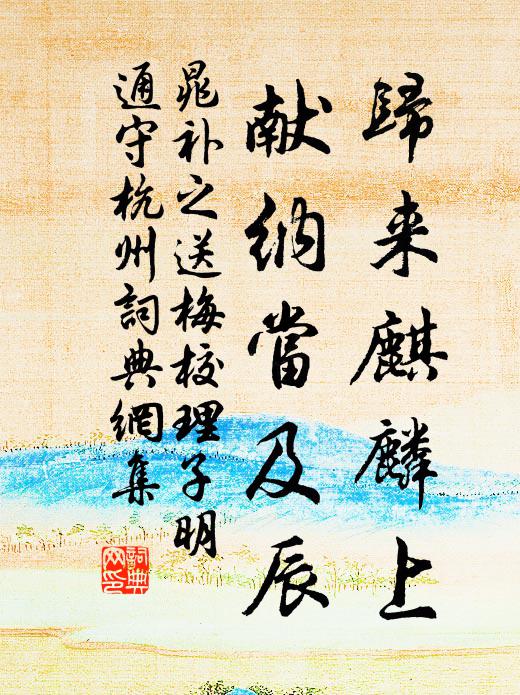 歸来麒麟上
献纳當及辰
晁补之送梅校理子明
通守杭州詞典網集
詞典网印